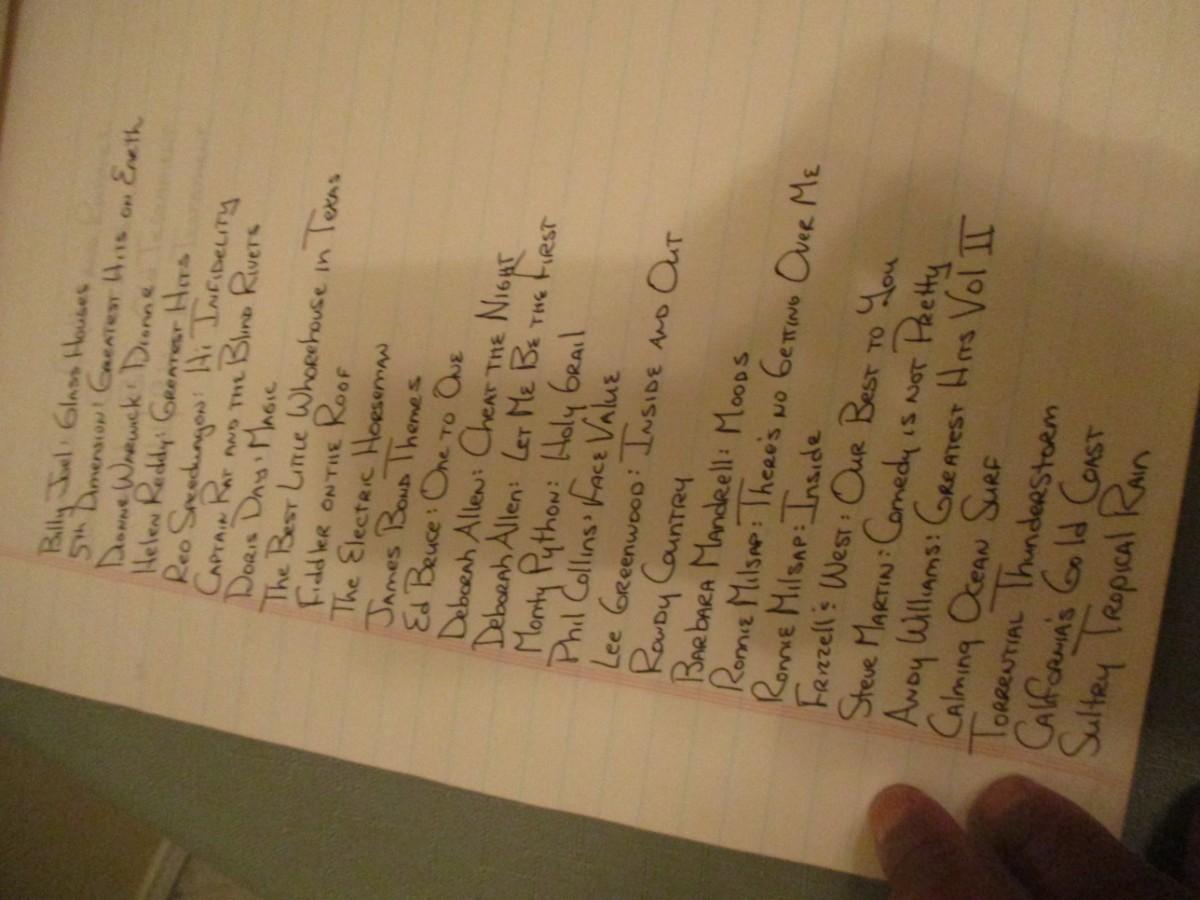 Billy Joel: Glass Houses
5th Dimension: Greatest Hits on Earth
Dionne Warwick: Dionne
Helen Reddy: Greatest Hits
Reo Speedwagon: Hi Infidelity
Captain Rat and the Blind Rivets
Doris Day: Magic
The Best Little Whorehouse in Texas
Fiddler on the Roof
The Electric Horseman
James Bond Themes
Ed Bruce: One to One
Deborah Allen: Cheat the Night
Deborah Allen: Let Me Be the First
Monty Python: Holy Grail
Phil Collins: Face Value
Lee Greenwood: Inside and Out
Rowdy Country
Barbara Mandrell: Moods
Ronnie Milsap: There's no Getting Over Me
Ronnie Milsap: Inside
Frizzell & West: Our Best to You
Steve Martin: Comedy is not Pretty
Andy Williams: Greatest Hits Vol II
Calming Ocean Surf
Torrential Thunderstorm
California's Gold Coast
Sultry Tropical Rain